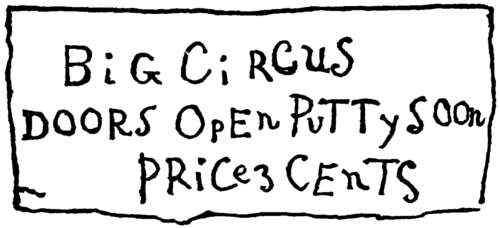 BiG Ci RCUS
DOORS OPEn PuTTy SOOn
PRiCe 3 CEnTS